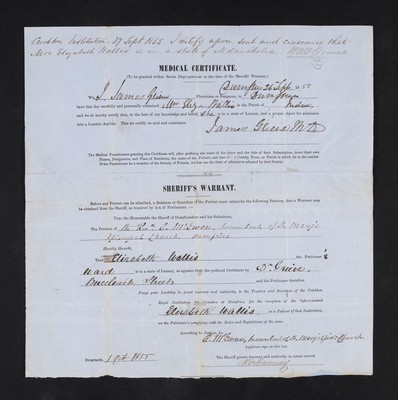 Crichton Institution, 29 Sept 1855. I certify upon soul and conscience that
Mrs Elizabeth Wallis is in a state of Melancholia
MEDICAL CERTIFICATE.
(To be granted within Seven Days previous to the date of the Sheriff's Warrant.)
Dumfries 26 Sept 1855
I, James Grieve Physician or Surgeon in Dumfries
have this day carefully and personally examined Mrs Eliza Wallis in the Parish of
and do hereby certify that, to the best of my knowledge and belief, she is in a state of Lunacy, and a proper object for admission
into a Lunatic Asylum. This we certify on soul and conscience.
James Grieve M.D.
The Medical Practitioners granting the Certificate will, after prefixing the name of the place and the date of their Subscription, insert their own
Names, Designation, and Place of Residence, the name of the Patient, and that of the County, Town, or Parish in which he or she resides.
If the Practitioner be a member of the Society of Friends, let him use the form of affirmation adopted by that Society.
SHERIFF'S WARRANT.
Before any Patient can be admitted, a Relation or Guardian of the Patient must subscribe the following Petition, that a Warrant may
be obtained from the Sheriff, as required by Act of Parliament:—
Unto the Honourable the Sheriff of Dumfriesshire and his Substitutes,
The Petition of the Rev. A. McEwen, Incumbent of St Mary's
Episcopal Church Dumfries
Humbly Sheweth,
That Elizabeth Wallis the Petitioner's
ward is in a state of Lunacy, as appears from the prefixed Certificate by Dr Grieve,
Buccleuch Street and the Petitioner therefore
Prays your Lordship to grant warrant and authority to the Trustees and Directors of the Crichton
Royal Institution for Lunatics at Dumfries, for the reception of the before-named
Elizabeth Wallis, as a Patient of that Institution,
on the Petitioner's complying with the Rules and Regulations of the same.
According to Justice, &c.
A. McEwen, Incumbent of St Mary's Epis. Church
Applicants sign on this line.
Dumfries, 1 Oct. 1855
The Sheriff grants warrant and authority in terms craved